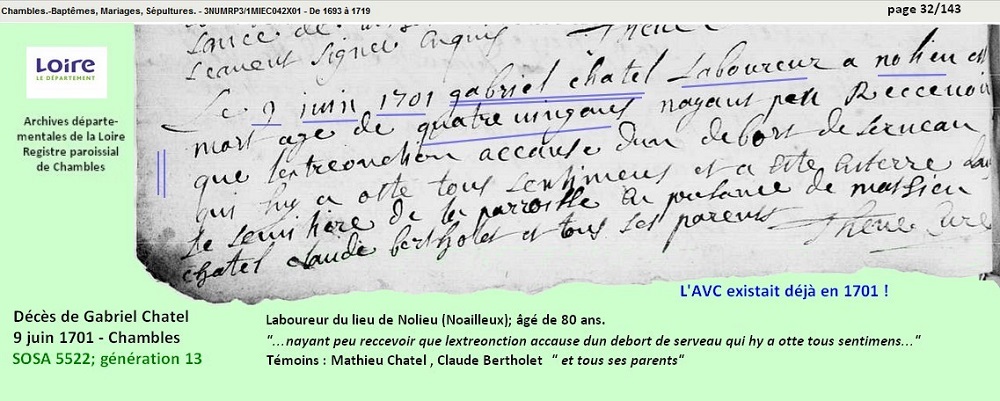 Chambles.-Baptêmes, Mariages, Sépultures. - 3NUMRP3/1MIEC042X01 - De 1693 à 1719
page 32/143
Loire
LE DÉPARTEMENT
Archives départe-
mentales de la Loire
Registre paroissial
de Chambles
Le 9 juin 1701 gabriel chatel Laboureur a nolieu est
mort age de quatrevingans nayant peu Reccevoir
que lextreonction accause dun debort de serueau
qui hy a otte tous sentimens et a este enterre dans
le semistiere de la parroisse en presance de mathieu
chatel claude berthollet et tous ses parents
L'AVC existait déjà en 1701 !
Décès de Gabriel Chatel
9 juin 1701 - Chambles
SOSA 5522; génération 13
Laboureur du lieu de Nolieu (Noailleux); âgé de 80 ans.
"...nayant peu reccevoir que lextreonction accause dun debort de serveau qui hy a otte tous sentimens..."
Témoins : Mathieu Chatel , Claude Bertholet " et tous ses parents"